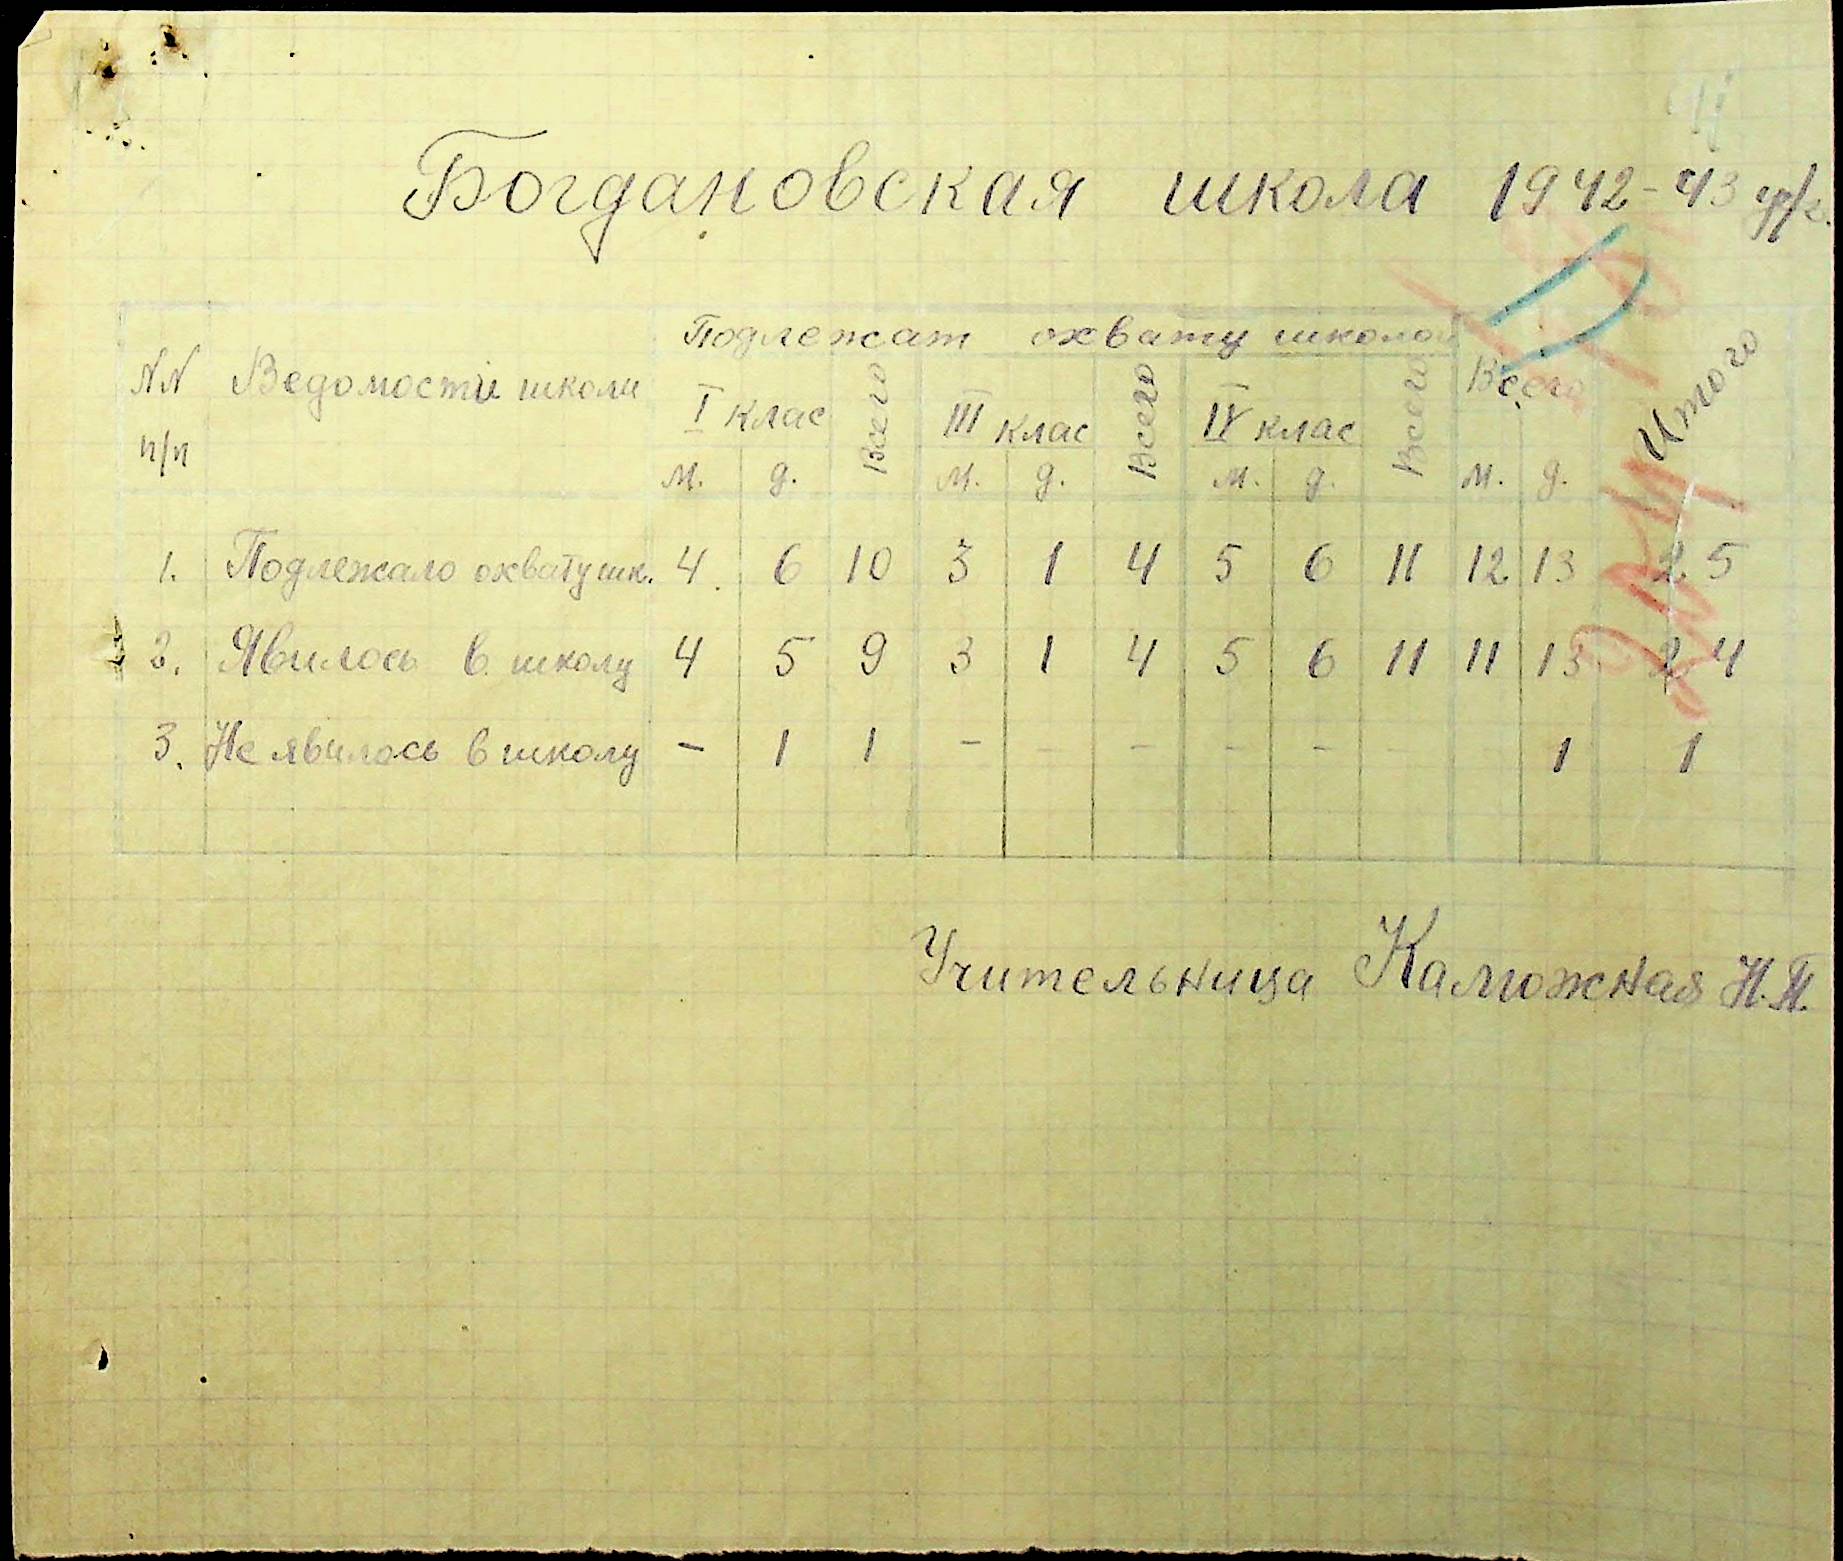 Богдановская школа 1942-43 уч/г.
Подлежат охвату школой
NN Ведомости школи I клас Всего III клас Всего IV клас Всего Всего Итого
п/п м. д. м. д. м. д. м. д.
1. Подлежало охвату шк. 4 6 10 3 1 4 5 6 11 12 13 25
2. Явилось в школу 4 5 9 3 1 4 5 6 11 11 13 24
3. Не явилось в школу - 1 1 - - - - - 1 1
Учительница Калюжная Н.П.